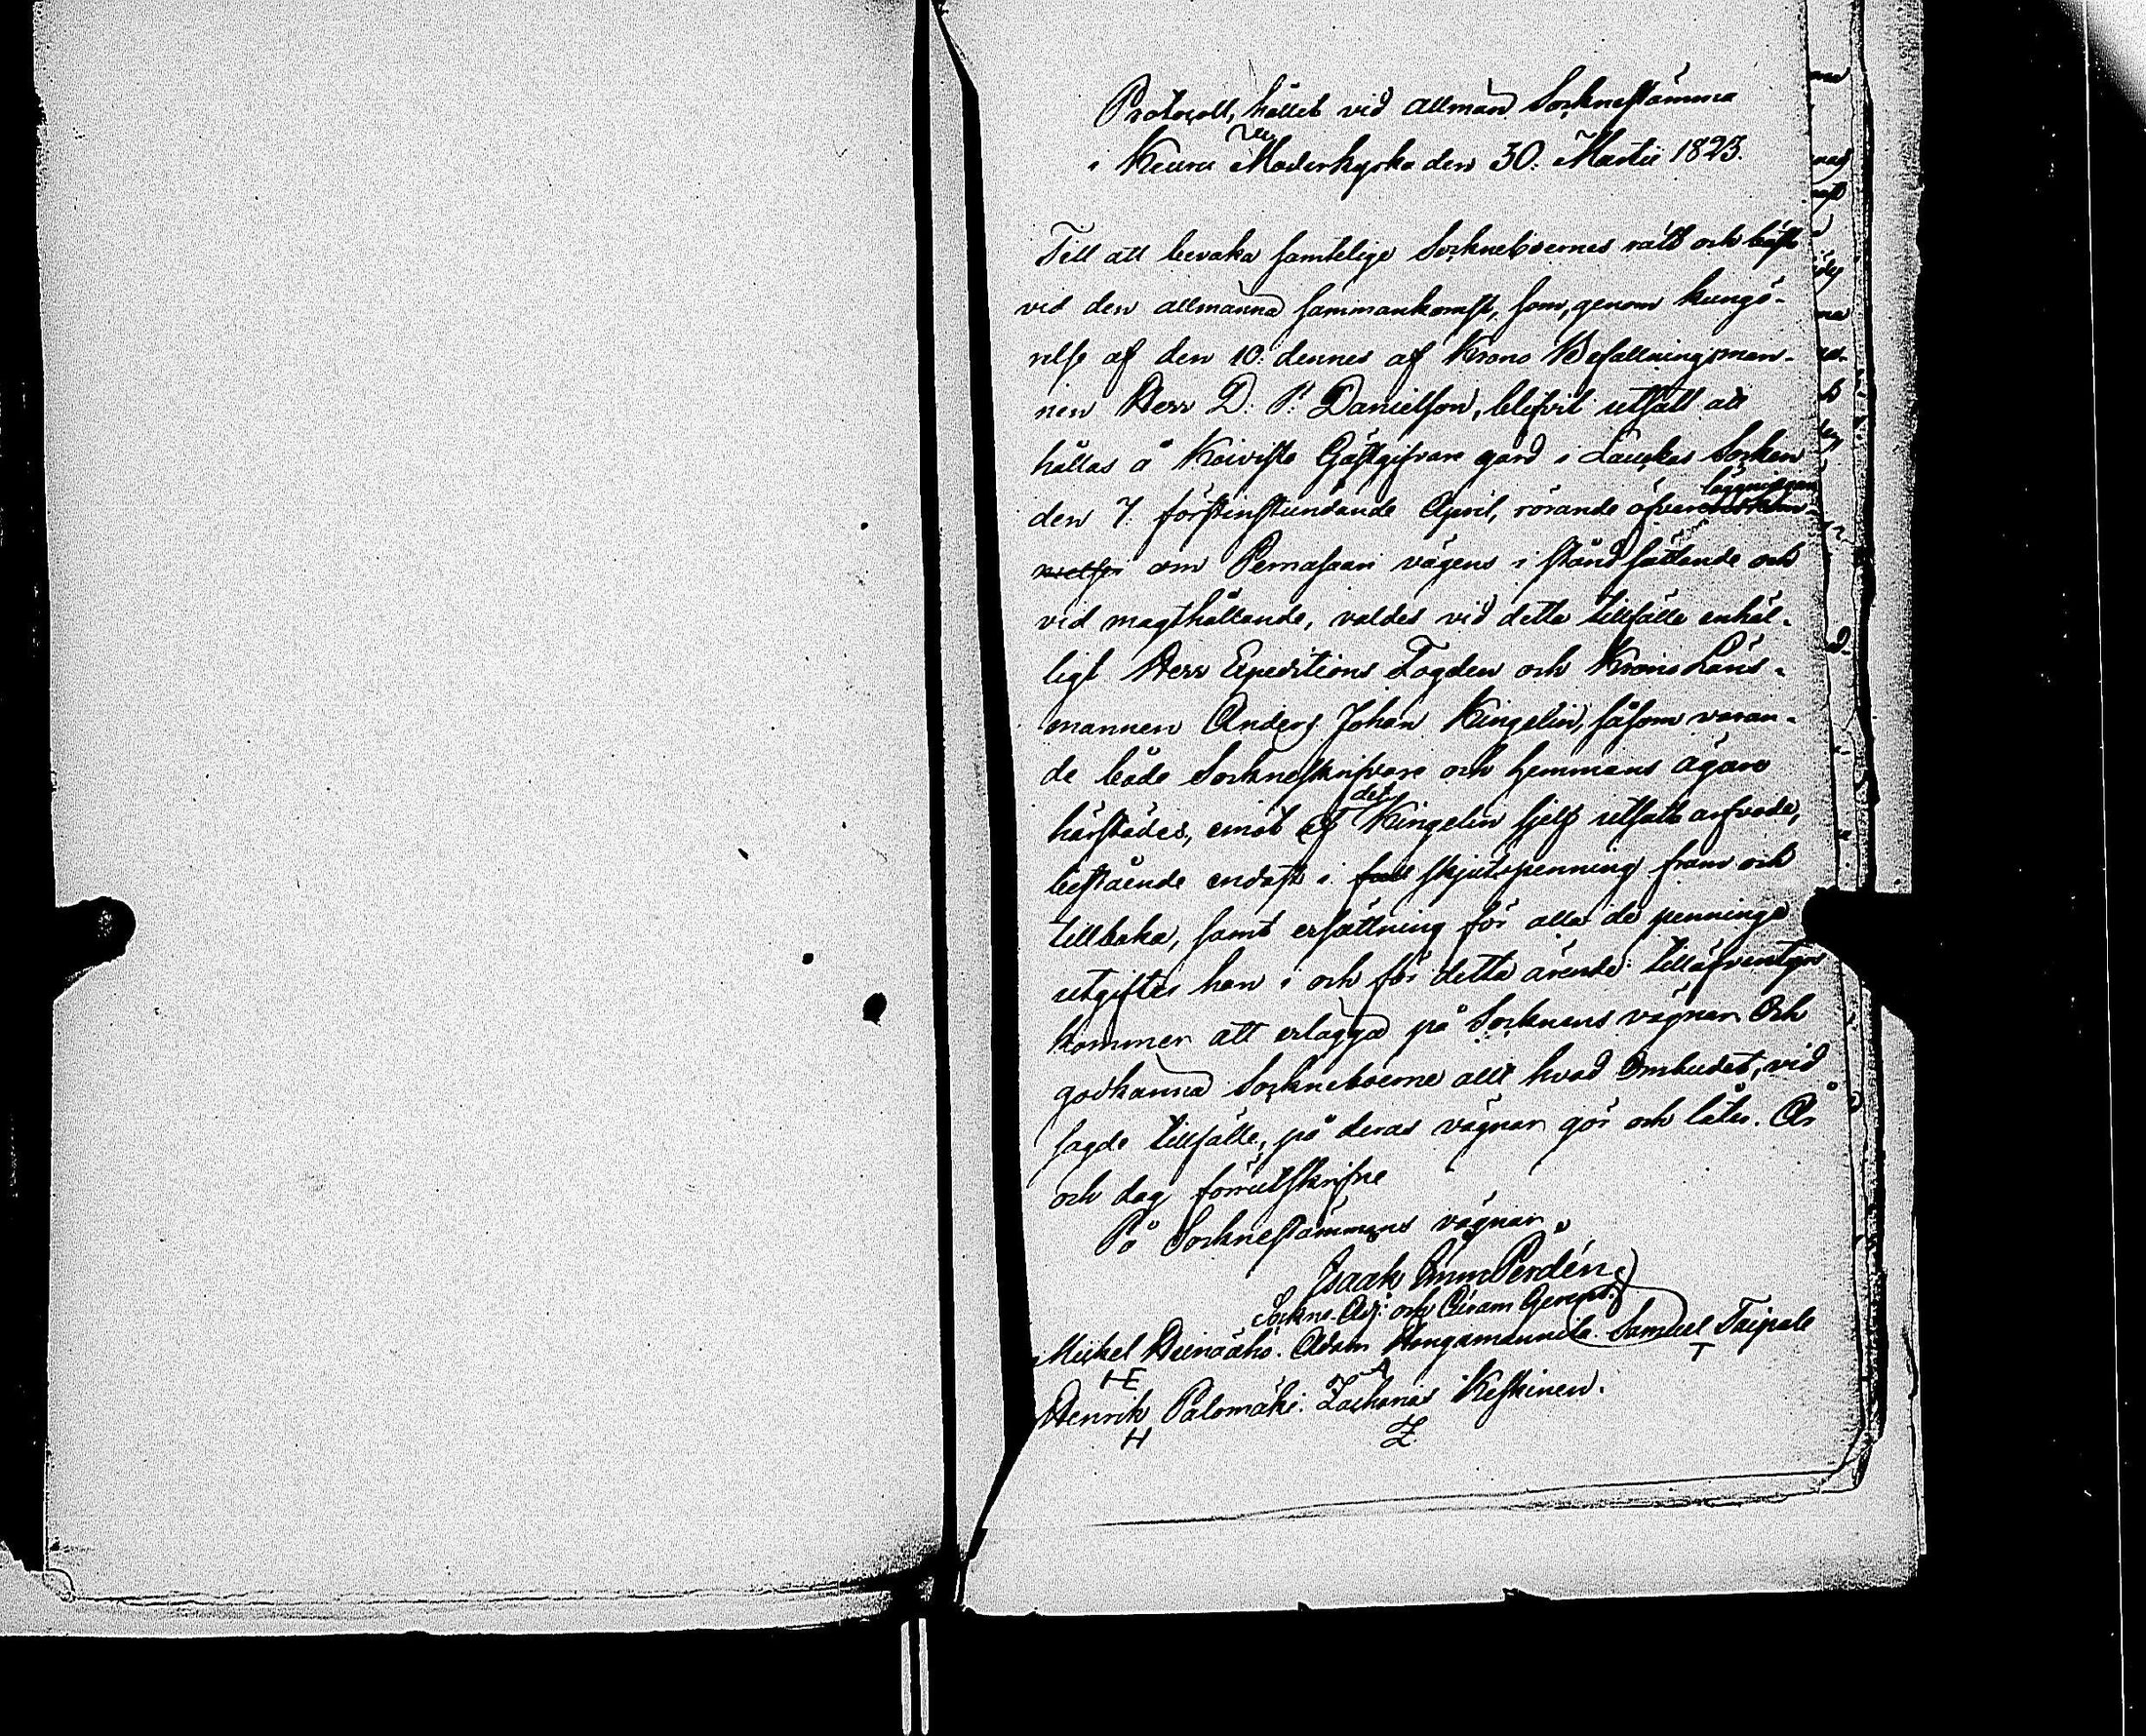 Protocoll, hållet vid allmän Socknestämma
i Keuru Moderkyrka den 30. Martii 1823.
Till att bevaka samtelige Sockneboernes rätt och bästa
vid den allmänna sammankomst, som, genom kungö-
relse af den 10. dennes af Krono Befallningsman-
nen Herr D. P. Danielson, blifvit utsatt att
hållas å Koivisto Gästgifvare gård i Laukas Socken
den 7. förstinstundande April, rörande öfverläggningen
om Pernasaari vägens i stånd sättande och
vid magthållande, valdes vid detta tillfälle enhäl-
ligt Herr Expeditions Fogden och Krono Läns-
mannen Anders Johan Kingelin, såsom varan-
de både Sockneskrifvare och hemmans ägare
härstädes, emot det af Kingelin sjelf utsatt arfvode,
bestående endast i skjutspenning fram och
tillbaka, samt ersättning för alla de penninge
utgifter han i och för detta ärende tilläfventyrs
kommer att erlägga på Socknens vägnar. Och
godkänna Sockneboerne allt hvad Ombudet, vid
sagde tillfälle, på deras vägnar gör och låter. År
och dag förrutskrifne
På Socknestämmans vägnar
Isaak Imm Perdén
Sockne Adj. och Gerent.
Mickel Heinäaho. Adam Hongamannila Samuel Taipale
HE A T
Henrik Palomäki. Zacharias Keskinen.
H Z